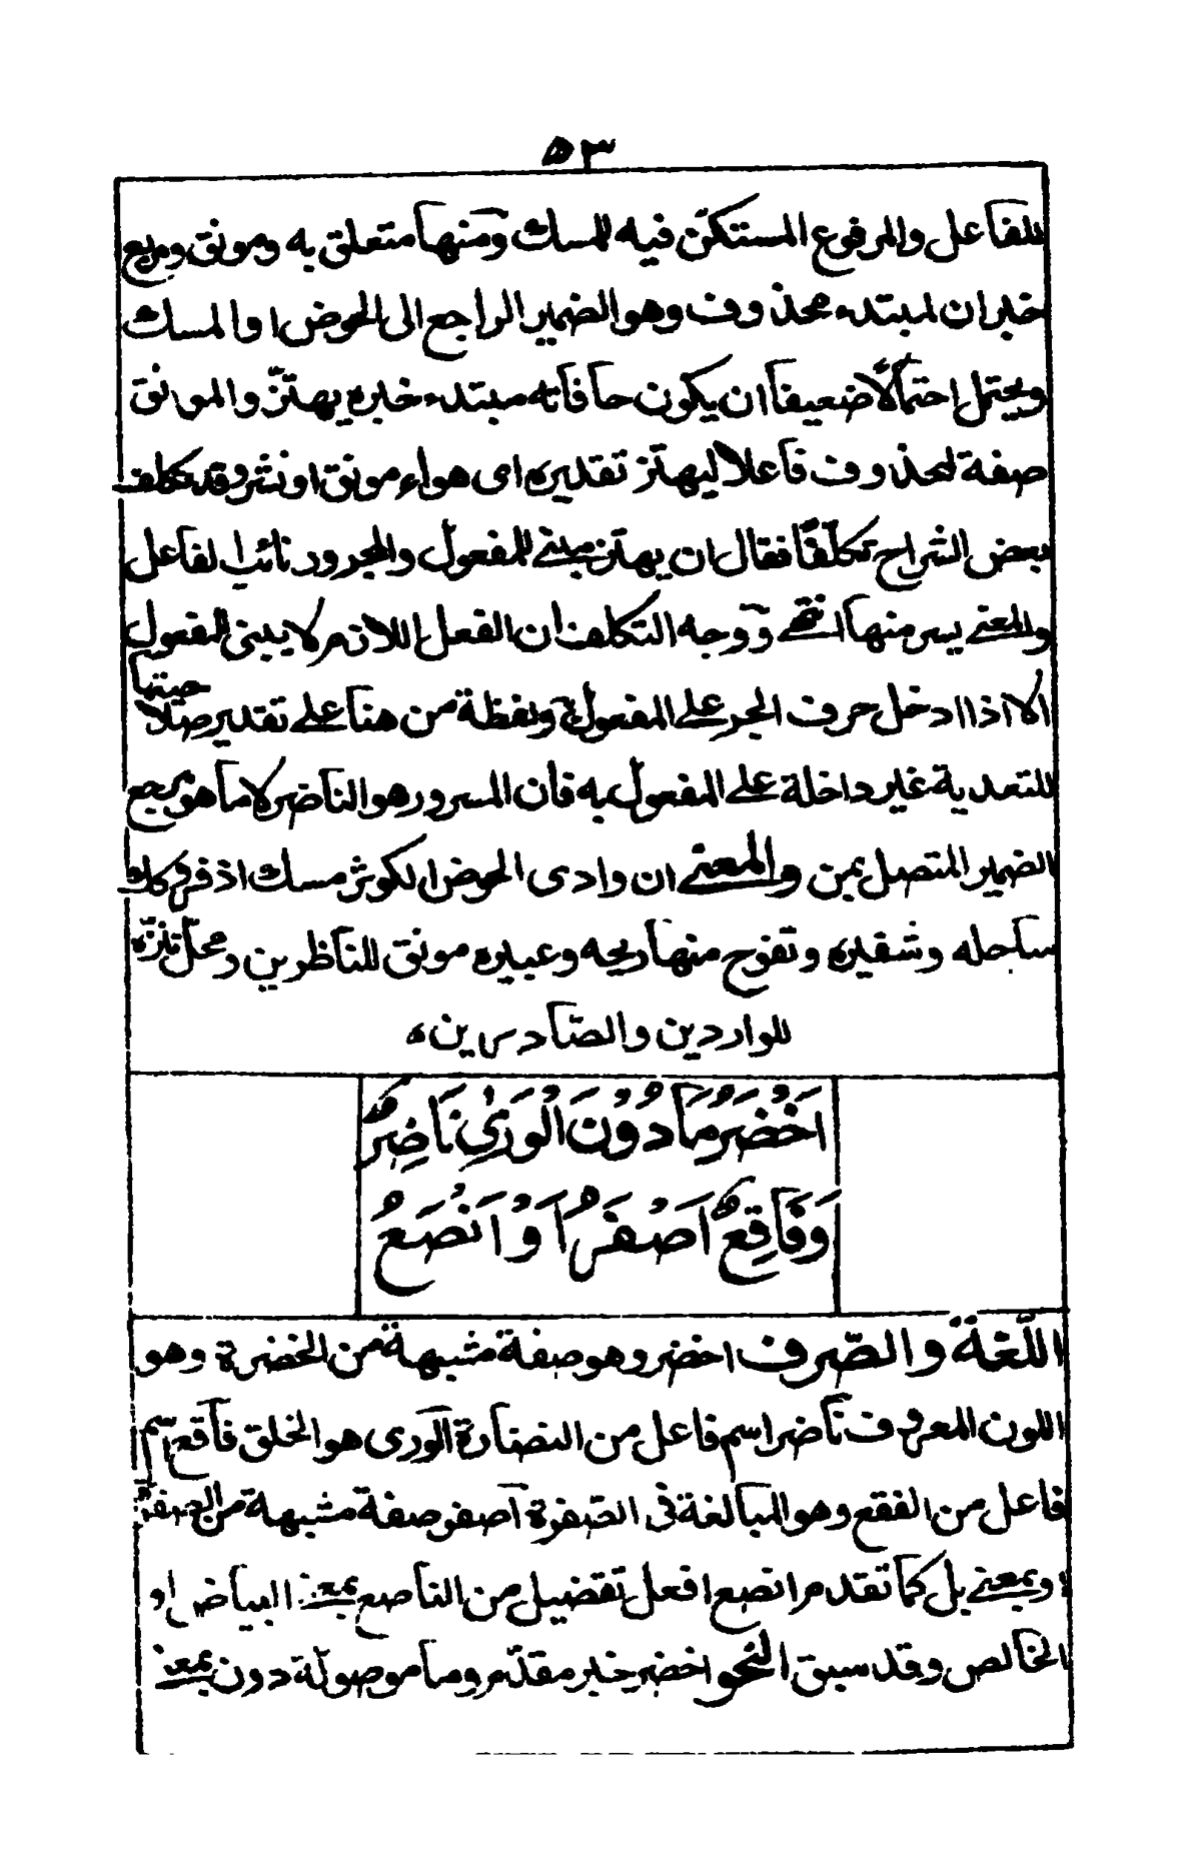 ٥٣
للفاعل والمرفوع المستكنّ فيه للمسك ومنها متعلق به ومونق ومريع
خبران لمبتدء محذوف وهو الضمير الراجع الى الحوض او المسك
ويحتمل احتمالًا ضعيفا ان يكون حافاته مبتدء خبره يهتزّ والمونق
صفة لمحذوف فاعلا ليهتز تقديره اى هواء مونق او نشر وقد تكلف
بعض الشراح تكلّفًا فقال ان يهتز مبنى للمفعول والمجرور نائب الفاعل
والمعنى يسر منها انتهى ووجه التكلف ان الفعل اللازم لا يبنى للمفعول
الا اذا ادخل حرف الجر على المفعول به ولفظة من هنا على تقدير صلاحيتها
للتعدية غير داخلة على المفعول به فان المسرور هو الناضر لا ما هو مرجع
الضمير المتصل بمن والمعنى ان وادى الحوض الكوثر مسك اذفر وكك
ساحله وشفيره وتفوح منها ريحه وعبيره مونق للناظرين ومحلّ تنزّه
للواردين والصّادرين ه
اَخْضَرُ مَا دُوْنَ الْوَرٰى نَاضِرٌ
وَفَاقِعٌ اَصْفَرُ اَوْ اَنْصَعُ
اللّغة والصّرف اخضر وهو صفة مشبهة من الخضرة وهو
اللون المعروف ناضر اسم فاعل من النضارة الورى هو الخلق فاقع اسم
فاعل من الفقع وهو المبالغة فى الصّفرة اصفر صفة مشبهة من الصفرة
او بمعنى بل كما تقدم انصع افعل تفضيل من الناصع بمعنى البياض او
الخالص وقد سبق النحو اخضر خبر مقدّم وما موصولة دون بمعنى